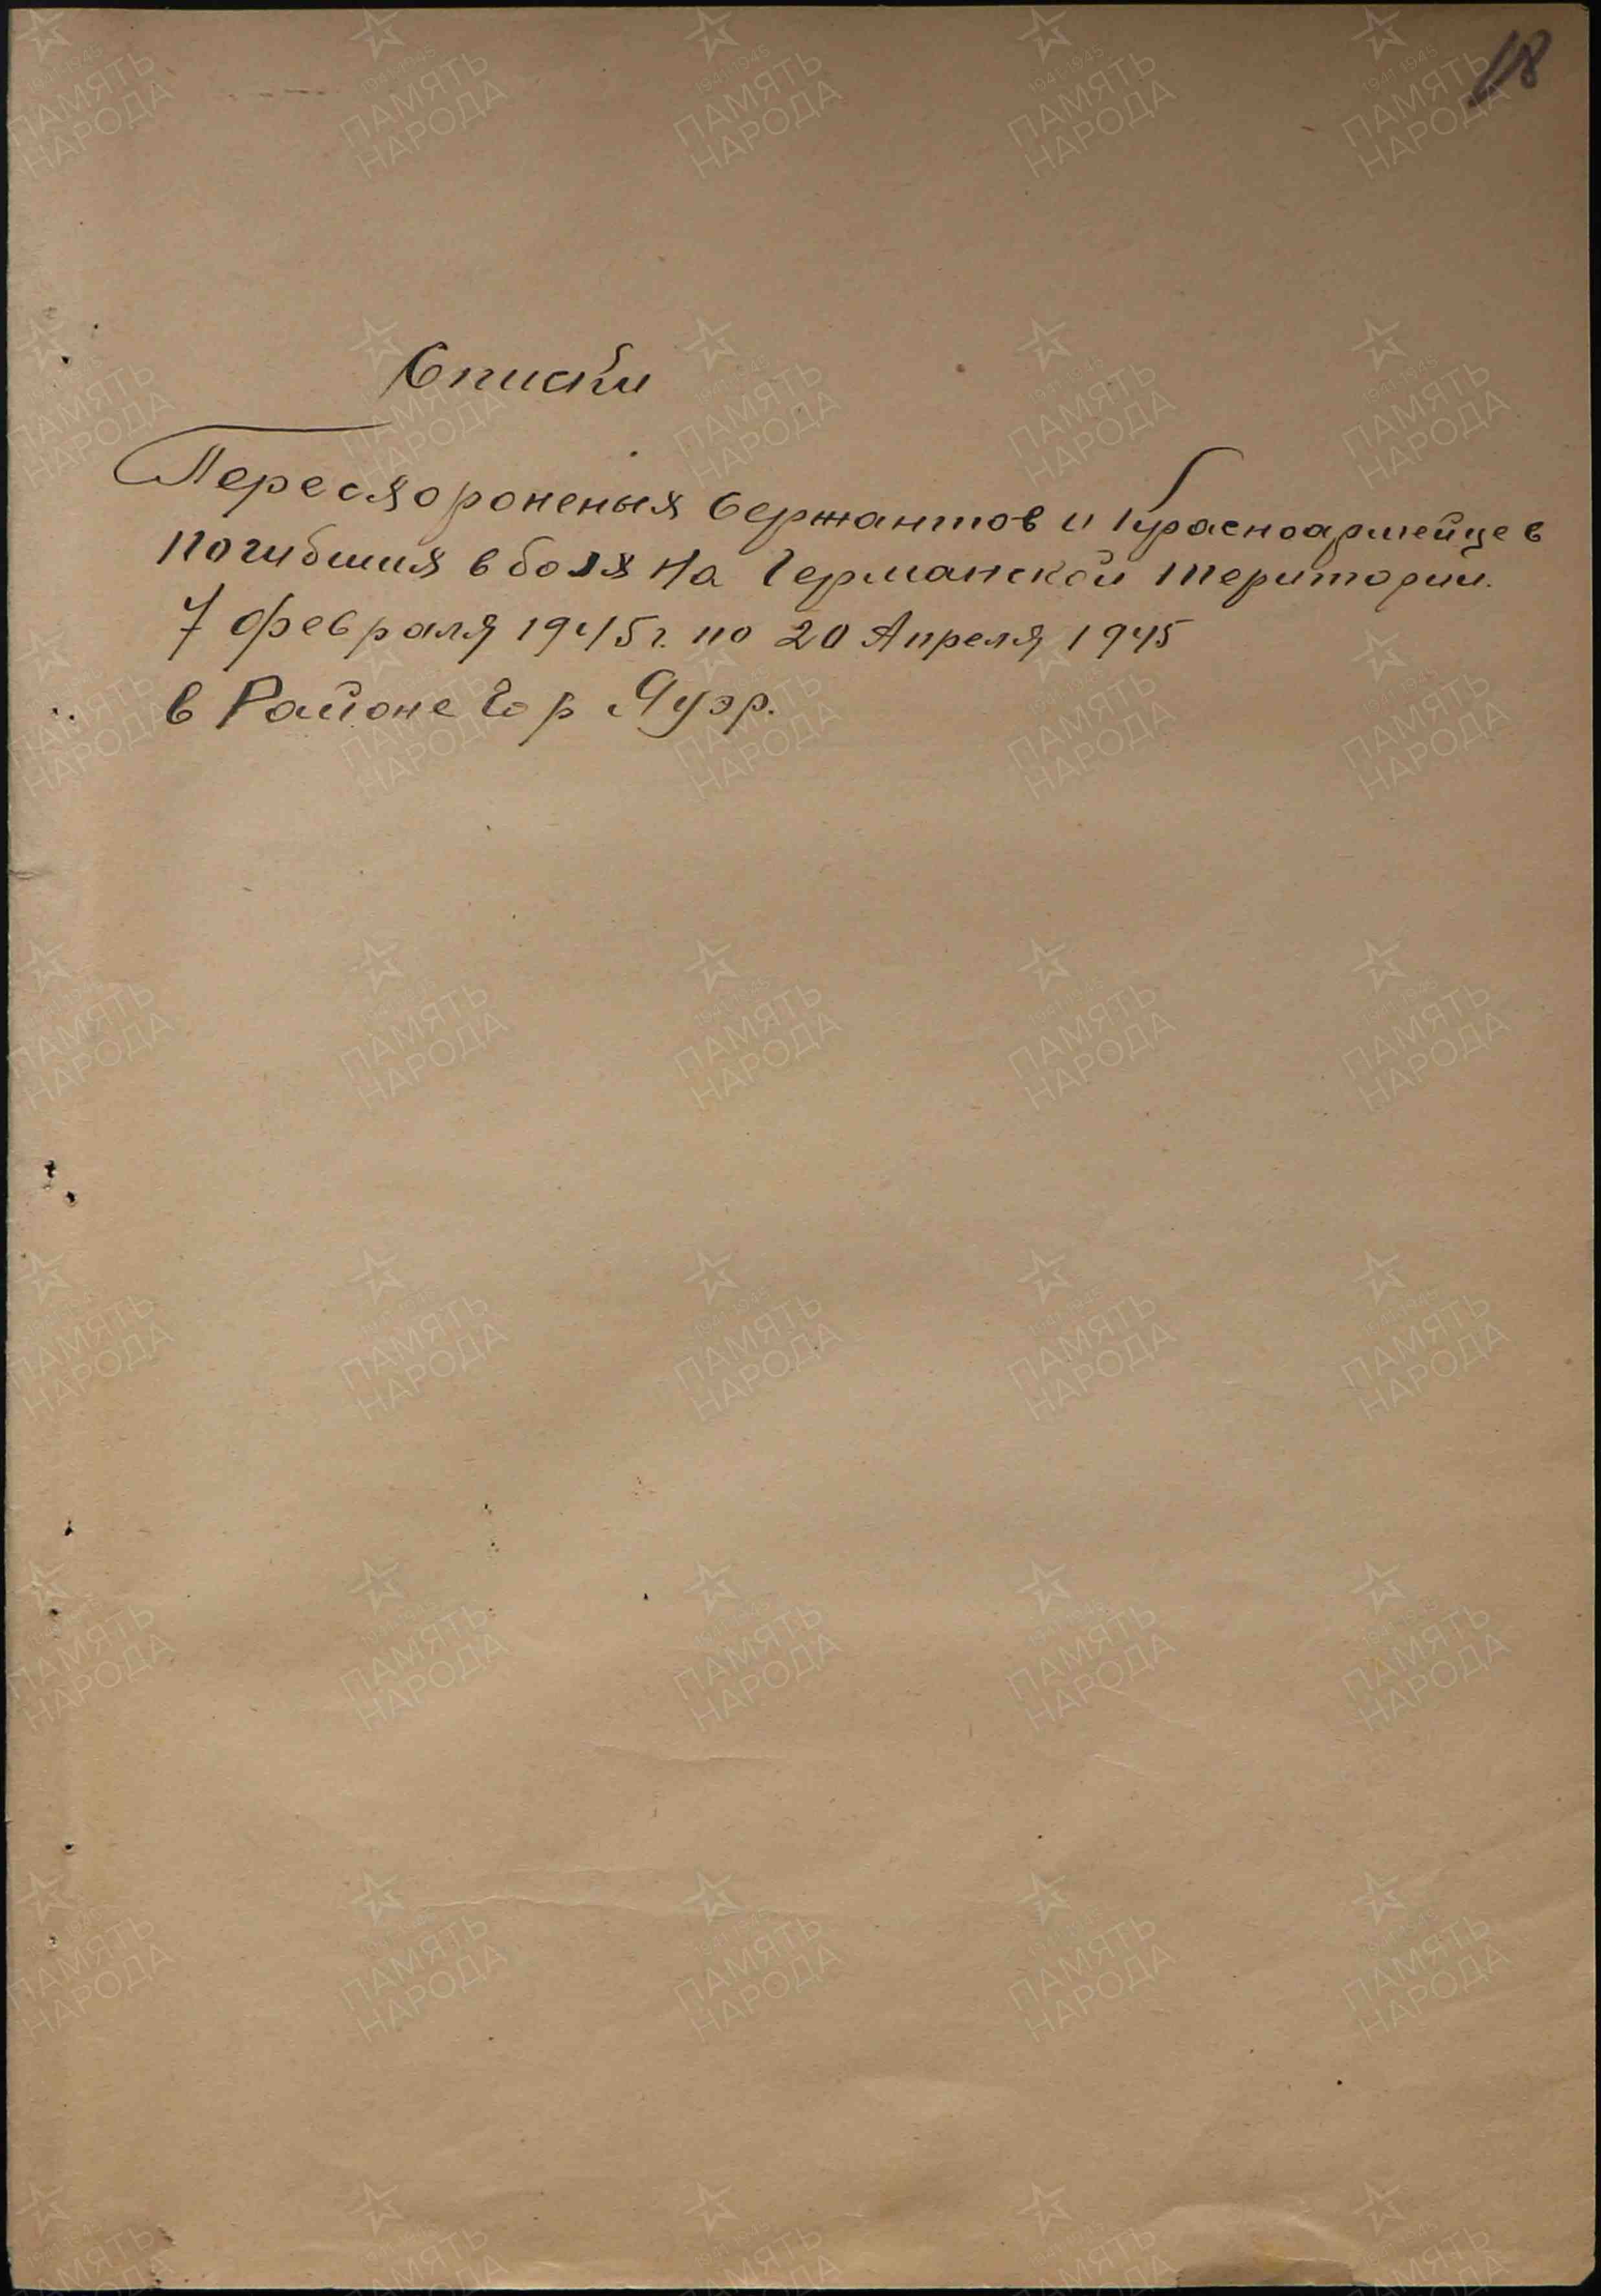 18
Списки
Пересхороненых Сержантов и Красноармейцев
погибших в боях на Германской територии.
7 февраля 1945 г. по 20 Апреля 1945
в Районе Гор Яуэр.
1941 1945
ПАМЯТЬ
НАРОДА